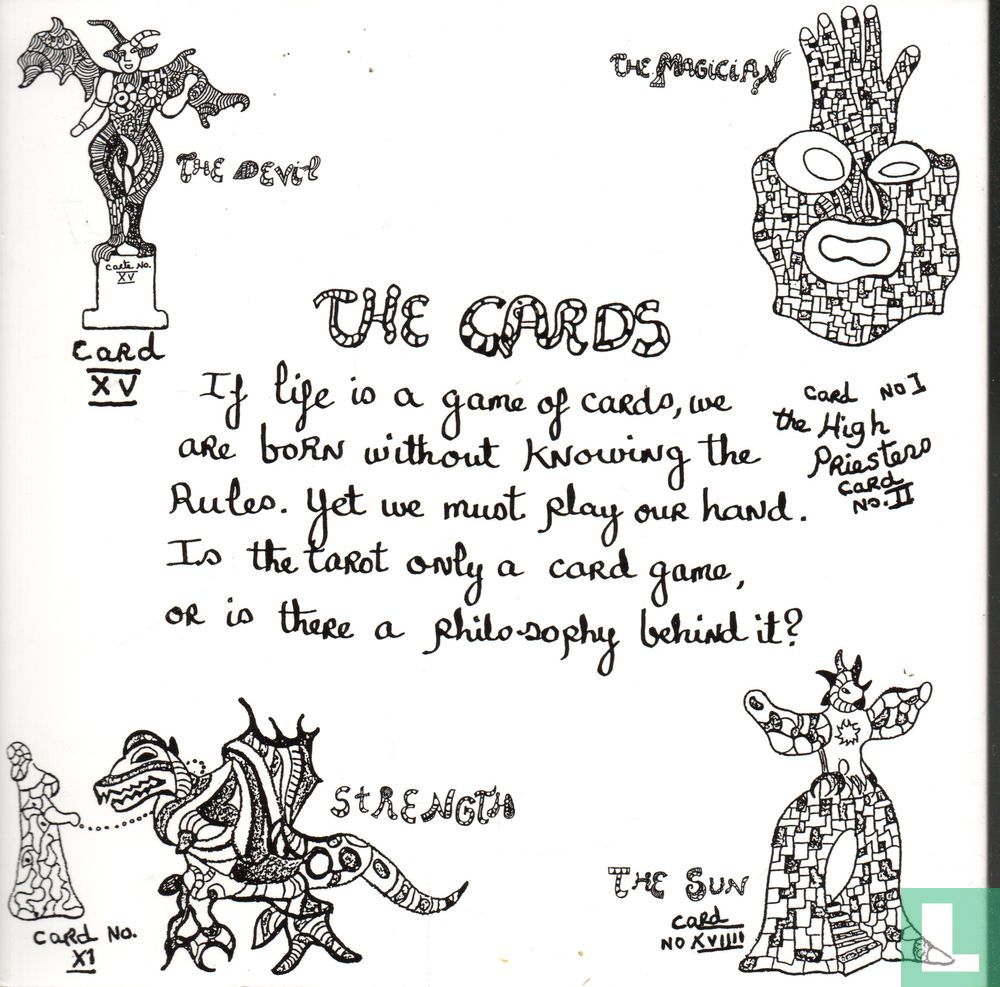 THE MAGICIAN
THE DEVIL
Carte No.
XV
Card
XV
THE CARDS
If life is a game of cards, we
are born without knowing the
Rules. Yet we must play our hand.
Is the tarot only a card game,
or is there a philosophy behind it?
Card No I
the High
Priestess
Card
No. II
STRENGTH
Card No.
XI
THE SUN
Card
No XVIIII
L